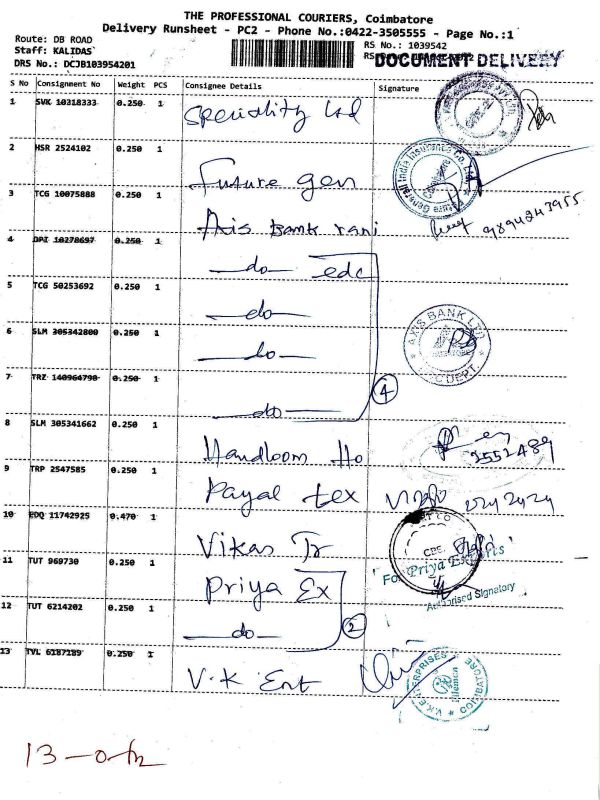 THE PROFESSIONAL COURIERS, Coimbatore
Delivery Runsheet - PC2 - Phone No.:0422-3505555 - Page No.:1
Route: DB ROAD
RS No.: 1039542
Staff: KALIDAS
RS
DOCUMENT DELIVERY
DRS No.: DCJB103954201
S No Consignment No Weight PCS Consignee Details Signature
1 SVK 10318333 0.250 1 Speciality Ltd
2 HSR 2524102 0.250 1 Future gen
Future Generali India Insurance Co. Ltd.
3 TCG 10075888 0.250 1 Axis Bank rani
9894243955
4 DPI 10278697 0.250 1 do edc
5 TCG 50253692 0.250 1 do
6 SLM 305342800 0.250 1 do
AXIS BANK LTD
DEPT.
7 TRZ 140964790 0.250 1 do
4
8 SLM 305341662 0.250 1 Handloom Ho
2552489
9 TRP 2547585 0.250 1 Payal tex
10 EDQ 11742925 0.470 1 Vikas Tr
CBE
11 TUT 969730 0.250 1 Priya Ex
For Priya Exports
Authorised Signatory
12 TUT 6214202 0.250 1 do
2
13 TVL 6187189 0.250 1 V.K Ent
V.K. ENTERPRISES
COIMBATORE